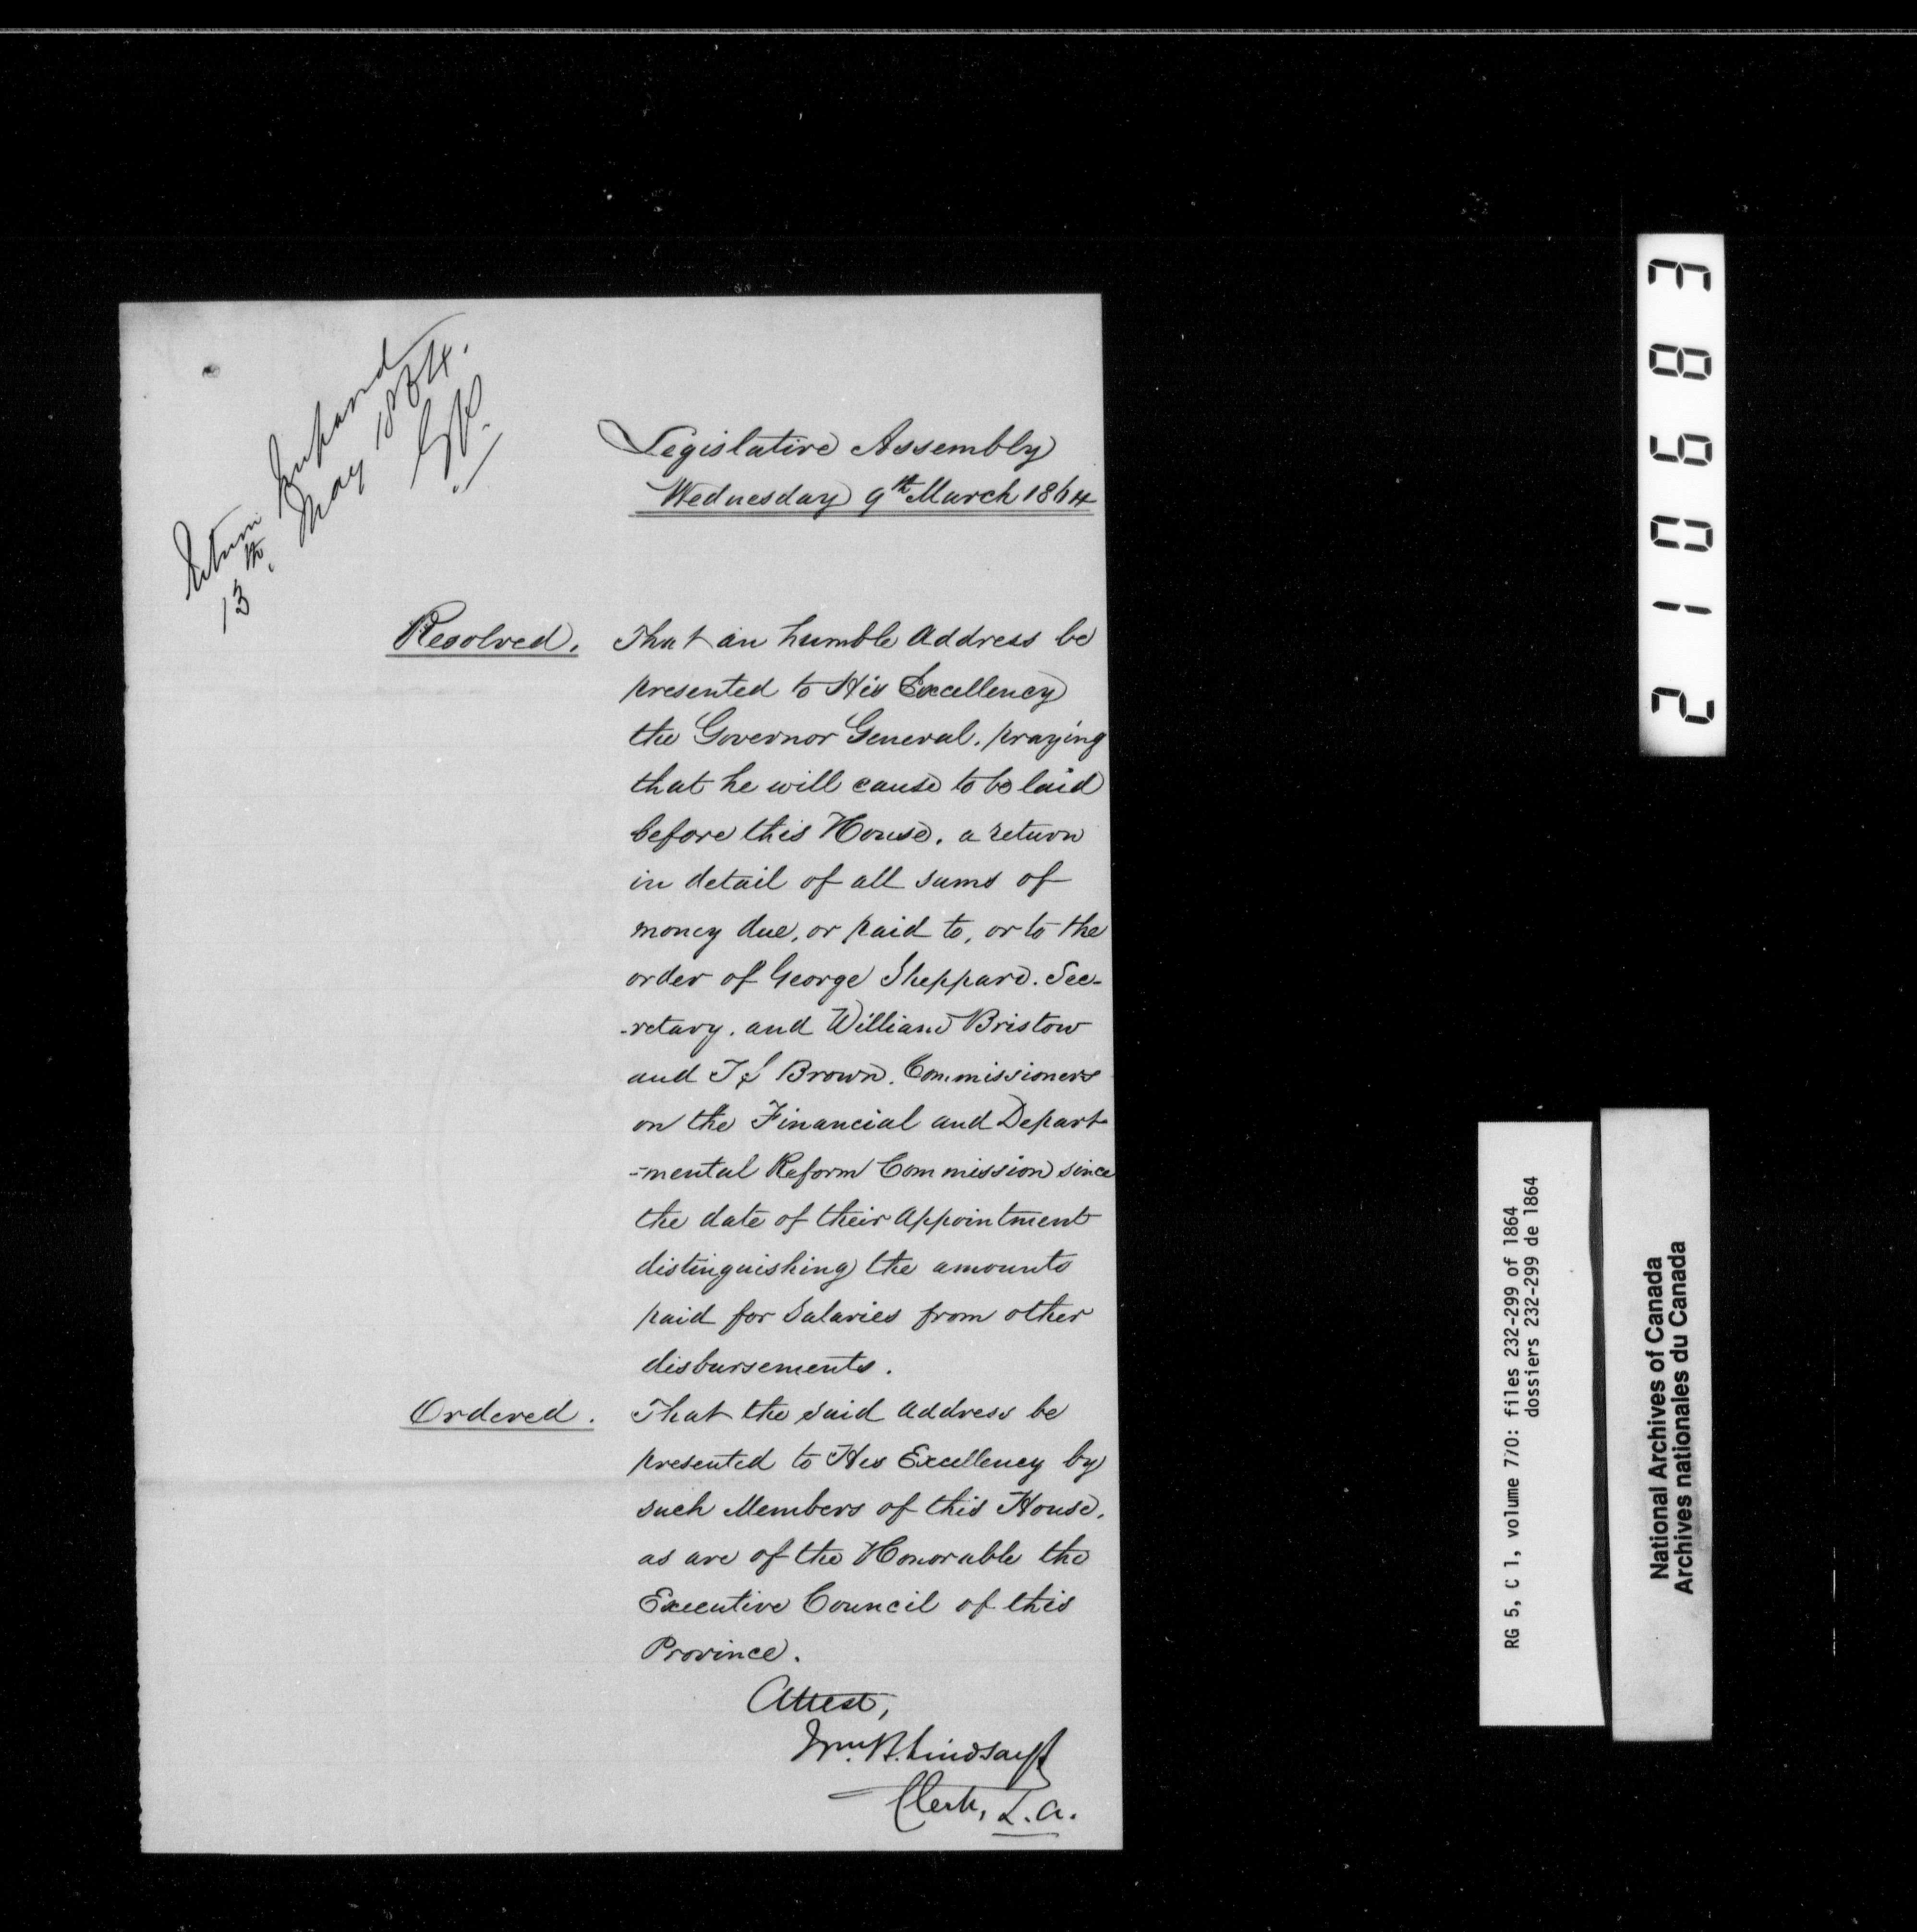 Return prepared
13th. May 1864.
Legislative Assembly
Wednesday 9th March 1864
Resolved. That an humble Address be
presented to His Excellency
the Governor General, praying
that he will cause to be laid
before this House, a return
in detail of all sums of
money due, or paid to, or to the
order of George Sheppard. Sec-
-retary, and William Bristow
and T S Brown. Commissioners
on the Financial and Depart
-mental Reform Commission since
the date of their Appointment
distinguishing the amounts
paid for Salaries from other
disbursements.
Ordered. That the said Address be
presented to His Excellency by
such Members of this House,
as are of the Honorable the
Executive Council of this
Province.
Attest,
Wm. B. Lindsay
Clerk, L. A.
210683
RG 5, C 1, volume 770: files 232-299 of 1864
dossiers 232-299 de 1864
National Archives of Canada
Archives nationales du Canada